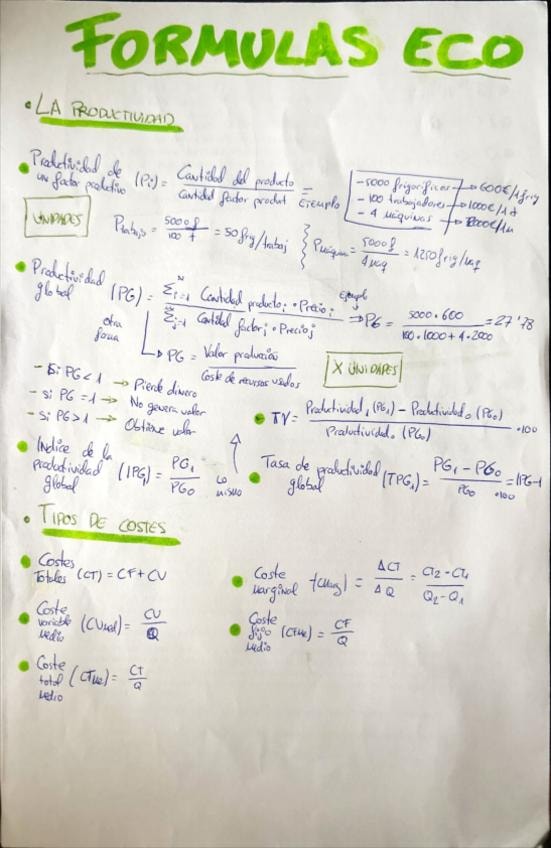 FORMULAS ECO
• LA PRODUCTIVIDAD
• Productividad de un factor productivo (Pi) = Cantidad del producto / Cantidad factor product = Ejemplo
- 5000 frigoríficos → 600€/1 frig
- 100 trabajadores → 1000€/1t
- 4 máquinas →
UNIDADES
Ptrabajo = 5000 f / 100 t = 50 frig/trabaj } Pmáquina = 5000 f / 4 maq = 1250 frig/maq
• Productividad global (PG) = Σ i=1 N Cantidad producto i · Precio i / Σ j=1 Cantidad factor j · Precio j ejemplo → PG = 5000 · 600 / 100 · 1000 + 4 · 2000 = 27'78
otra forma ↳ PG = Valor producción / Coste de recursos usados
X UNIDADES
- Si PG < 1 → Pierde dinero
- Si PG = 1 → No genera valor
- Si PG > 1 → Obtiene valor
• TV = Productividad 1 (PG1) - Productividad 0 (PG0) / Productividad 0 (PG0) · 100
• Índice de la productividad global (IPG) = PG1 / PG0
Lo mismo
• Tasa de productividad global (TPG1) = PG1 - PG0 / PG0 · 100 = IPG-1
• TIPOS DE COSTES
• Costes Totales (CT) = CF + CV
• Coste marginal (CMg) = ΔCT / ΔQ = CT2 - CT1 / Q2 - Q1
• Coste variable medio (CVMe) = CV / Q
• Coste fijo medio (CFMe) = CF / Q
• Coste total medio (CTMe) = CT / Q